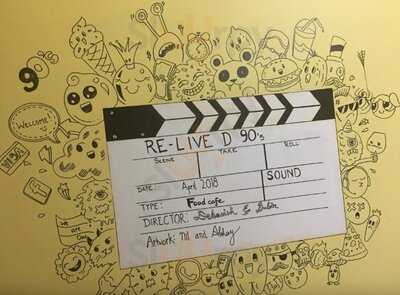 90's
Welcome!
RE-LIVE D 90's
SCENE TAKE ROLL
DATE: April 2018 SOUND
TYPE: Food cafe
DIRECTOR: Debasish &
Artwork: and Abhay
We are